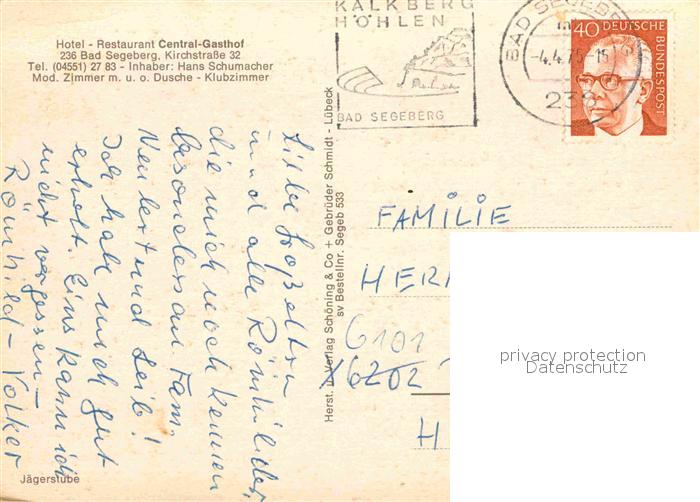 Hotel - Restaurant Central-Gasthof
236 Bad Segeberg, Kirchstraße 32
Tel. (04551) 27 83 - Inhaber: Hans Schumacher
Mod. Zimmer m. u. o. Dusche - Klubzimmer
KALKBERG
HÖHLEN
BAD SEGEBERG
BAD SEGEBERG
-4.4.75-15
236
40 DEUTSCHE
BUNDESPOST
und alle Römhilder,
die mich noch kennen
besonders an Fam.
und Leib!
Ich hab mich gut
erholt. Eins kann ich
nicht vergessen -
Römhild - Volker
Jägerstube
Herst. u. Verlag Schöning & Co + Gebrüder Schmidt - Lübeck
sv Bestellnr. Segeb 533
FAMILIE
HER
6101
6202
H
privacy protection
Datenschutz